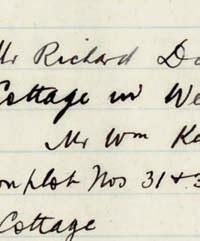 Mr Richard Da
Cottage in We
Mr Wm Ke
on plot Nos 31 + 3
Cottage